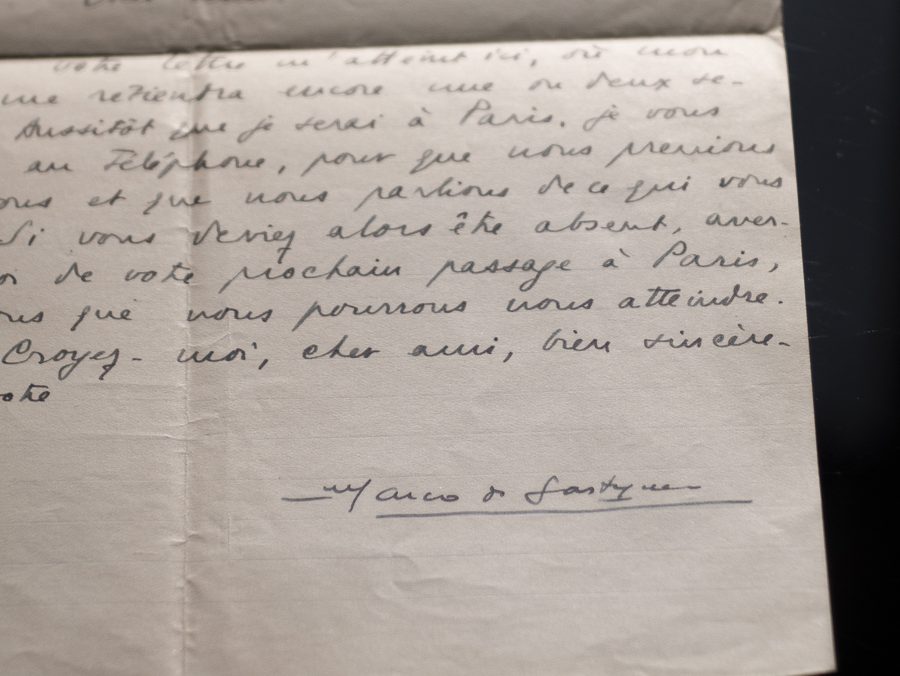 votre lettre m'atteint ici, où mon
me retiendra encore une ou deux se-
Aussitôt que je serai à Paris, je vous
au Téléphone, pour que nous prenions
ous et que nous parlions de ce qui vous
Si vous deviez alors être absent, aver-
oi de votre prochain passage à Paris,
ous que nous pourrons nous atteindre.
Croyez-moi, cher ami, bien sincère-
otre
Marco de Gastyne